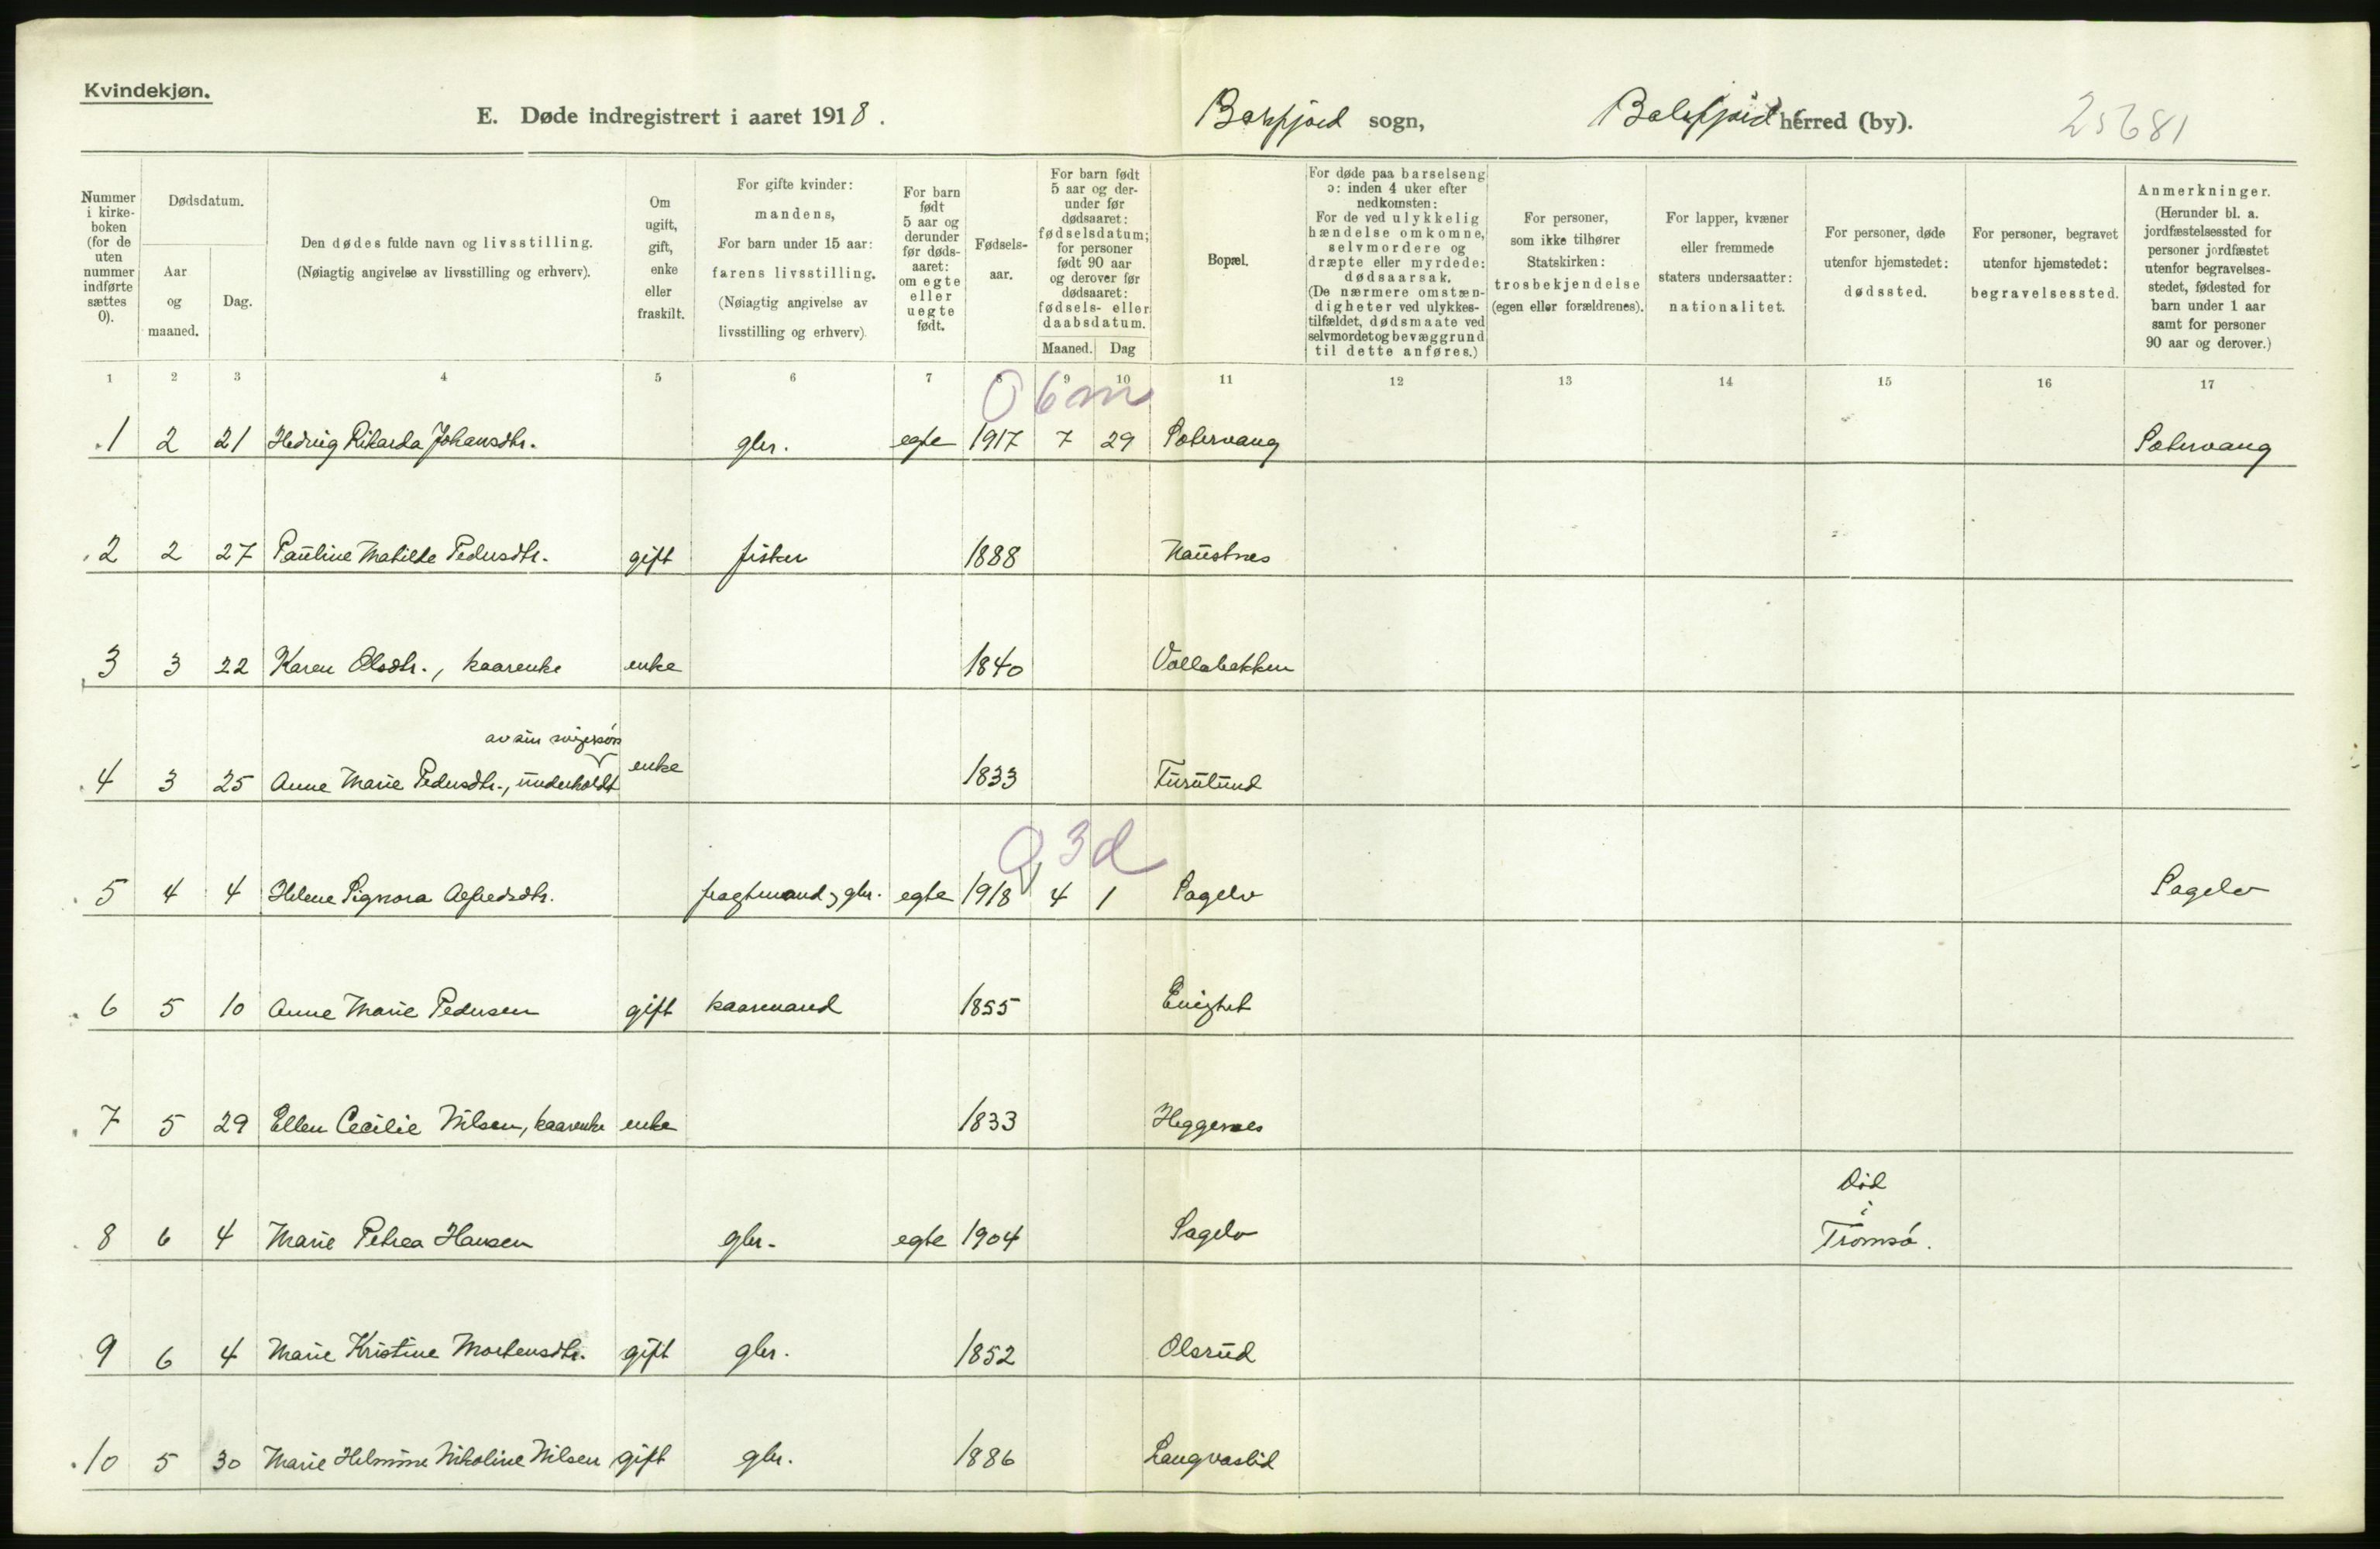 Kvindekjøn.
E. Døde indregistrert i aaret 1918.
Balsfjord sogn, Balsfjord herred (by). 25681
Nummer i kirke- boken (for de uten nummer indførte sættes 0).
Dødsdatum.
Aar og maaned.
Dag.
Den dødes fulde navn og livsstilling.
(Nøiagtig angivelse av livsstilling og erhverv).
Om ugift, gift, enke eller fraskilt.
For gifte kvinder:
mandens,
For barn under 15 aar:
farens livsstilling.
(Nøiagtig angivelse av
livsstilling og erhverv).
For barn født 5 aar og derunder før døds- aaret: om egte eller uegte født.
Fødsels- aar.
For barn født 5 aar og der- under før dødsaaret: fødselsdatum; for personer født 90 aar og derover før dødsaaret: fødsels- eller daabsdatum.
Maaned. Dag
Bopæl.
For døde paa barselseng
ɔ: inden 4 uker efter
nedkomsten:
For de ved ulykkelig
hændelse omkomne,
selvmordere og
dræpte eller myrdede:
dødsaarsak.
(De nærmere omstæn-
digheter ved ulykkes-
tilfældet, dødsmaate ved
selvmordet og bevæggrund
til dette anføres.)
For personer,
som ikke tilhører
Statskirken:
trosbekjendelse
(egen eller forældrenes).
For lapper, kvæner
eller fremmede
staters undersaatter:
nationalitet.
For personer, døde
utenfor hjemstedet:
dødssted.
For personer, begravet
utenfor hjemstedet:
begravelsessted.
Anmerkninger.
(Herunder bl. a.
jordfæstelsessted for
personer jordfæstet
utenfor begravelses-
stedet, fødested for
barn under 1 aar
samt for personer
90 aar og derover.)
1 2 3 4 5 6 7 8 9 10 11 12 13 14 15 16 17
0 6 m
1 2 21 Hedvig Rikarda Johansdtr. gbr. egte 1917 7 29 Sætervang Sætervang
2 2 27 Pauline Matilde Pedersdtr. gift fisker 1888 Naustnes
3 3 22 Karen Olsdtr., kaarenke enke 1840 Vollabekken
av sin svigersøn
4 3 25 Anne Marie Pedersdtr., underholdt enke 1833 Furulund
0 3 d
5 4 4 Helene Signora Alfredsdtr. fragtmand, gbr. egte 1918 4 1 Sagelv Sagelv
6 5 10 Anne Marie Pedersen gift kaarmand 1855 Enighet
7 5 29 Ellen Cecilie Nilsen, kaarenke enke 1833 Heggenes
Død
i
8 6 4 Marie Petrea Hansen gbr. egte 1904 Sagelv Tromsø.
9 6 4 Marie Kristine Mortensdtr. gift gbr. 1852 Olsrud
10 5 30 Marie Helmine Nikoline Nilsen gift gbr. 1886 Langvaslid